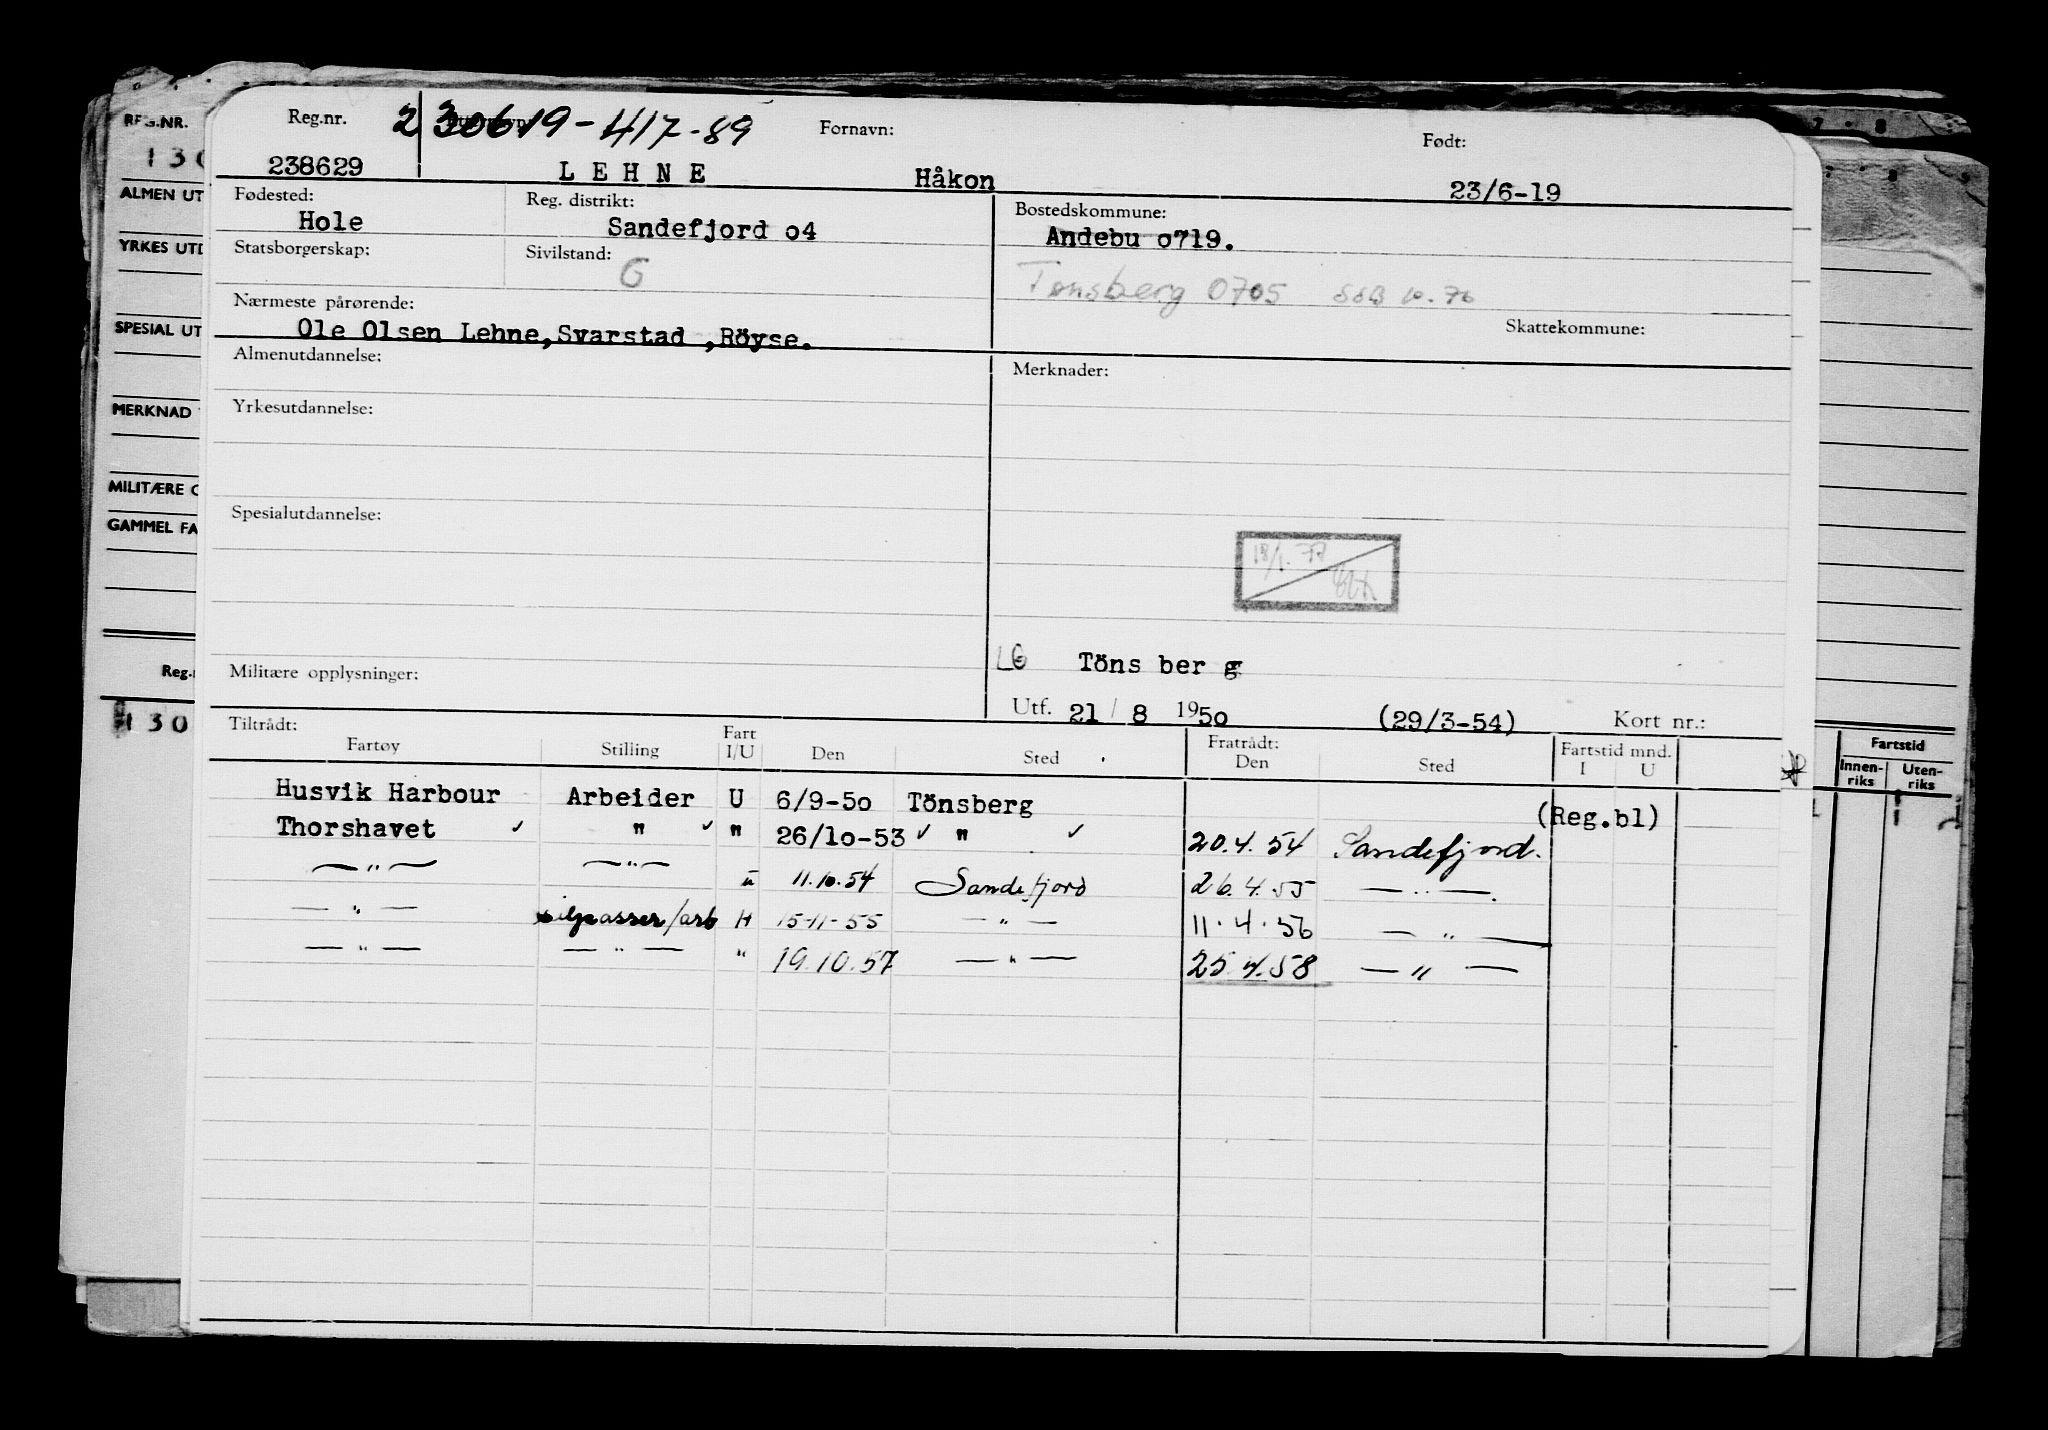 REG.NR.
130
ALMEN UT
YRKES UTD
SPESIAL UT
MERKNAD
MILITÆRE O
GAMMEL FA
Reg.
130
Reg.nr. 2 30619-417-89 Fornavn: Født:
238629 LEHNE Håkon 23/6-19
Fødested: Reg. distrikt: Bostedskommune:
Hole Sandefjord o4 Andebu o719.
Statsborgerskap: Sivilstand: G
Tønsberg 0705 SSB 10.76
Nærmeste pårørende: Skattekommune:
Ole Olsen Lehne,Svarstad ,Röyse.
Almenutdannelse: Merknader:
Yrkesutdannelse:
Spesialutdannelse:
18/1.77
LG Töns ber g
Militære opplysninger:
Utf. 21 / 8 1950 (29/3-54) Kort nr.:
Tiltrådt: Fratrådt: Fartstid mnd.
Fartøy Stilling Fart I/U Den Sted Den Sted I U
Husvik Harbour Arbeider U 6/9-5o Tönsberg (Reg.bl)
Thorshavet ✓ " ✓ " 26/1o-53 ✓ " ✓ 20.4.54 Sandefjord.
— " — — " — u 11.10.54 Sandefjord 26.4.55 — " —.
— " — /arb H 15-11-55 — " — 11.4.56 — " —
— " — — " — " 19.10.57 — " — 25.4.58 — " —
Fartstid
Innen-riks Uten-riks